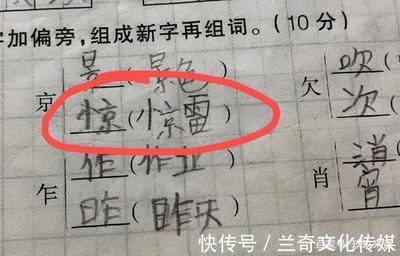 字加偏旁,组成新字再组词。(10 分)
景(景色) 吹(
京 欠
惊(惊雷) 次(
作(作业) 消
乍 肖
昨(昨天) 宵
快传号/兰奇文化传媒